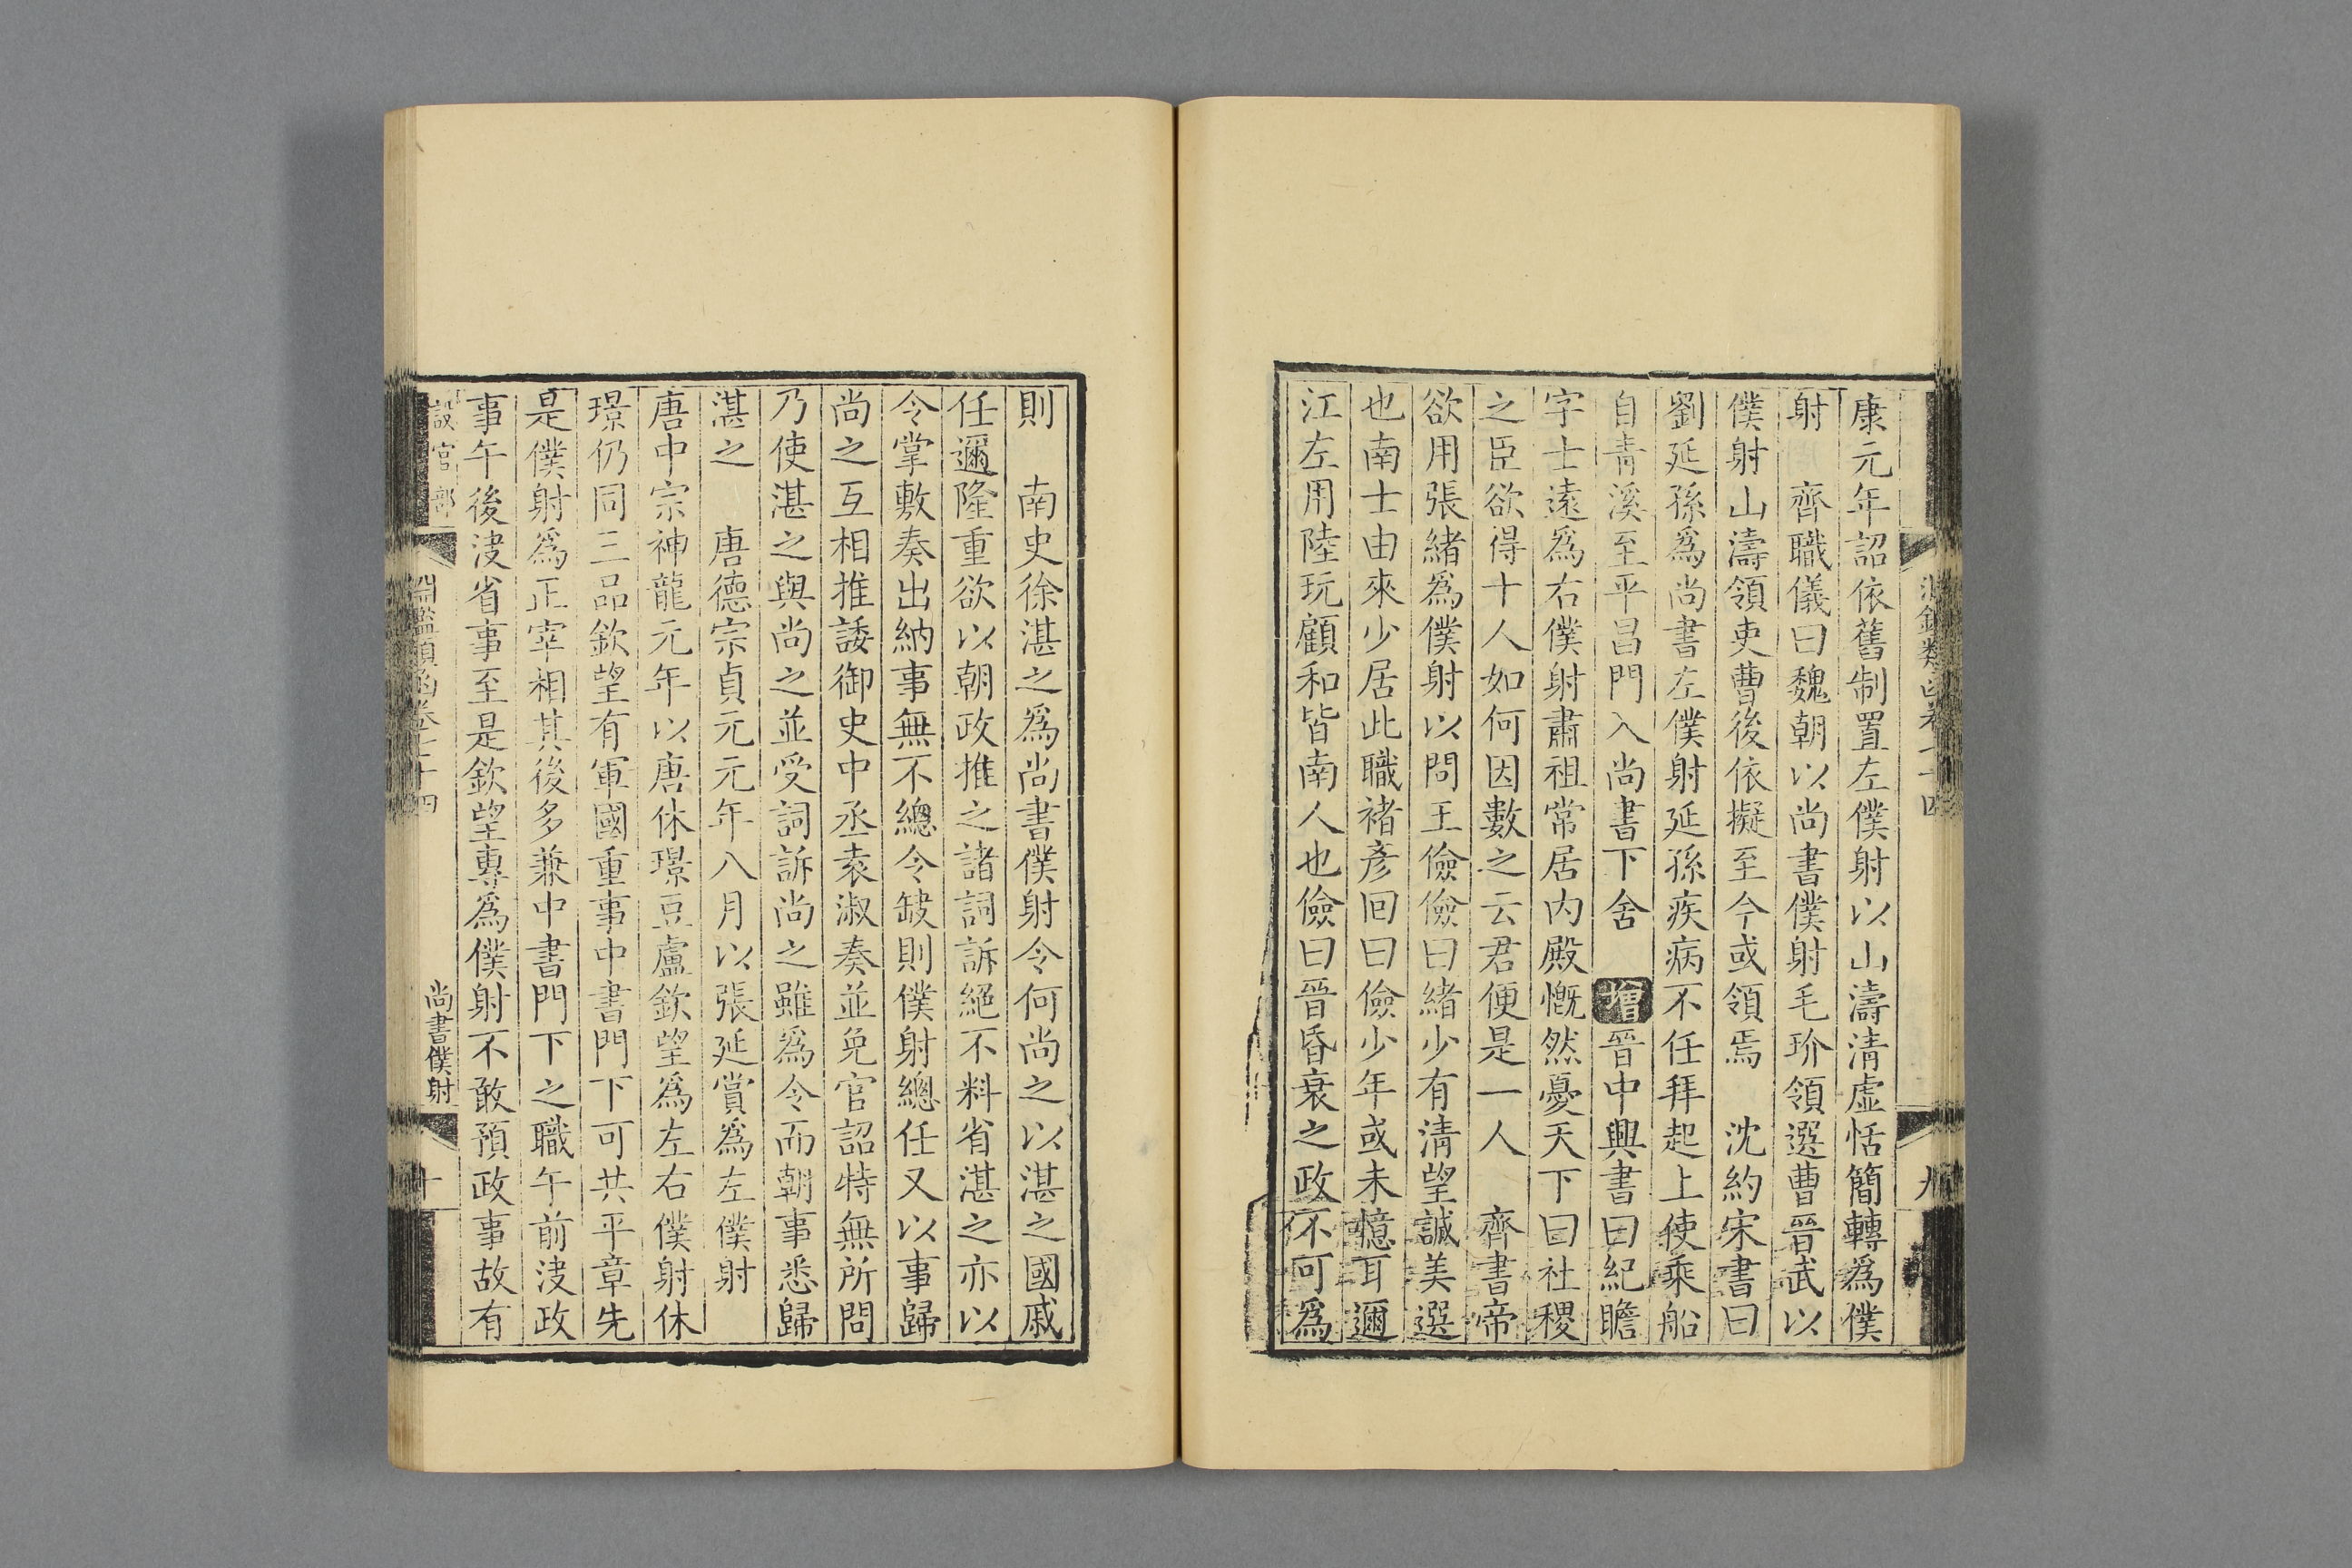 康元年詔依舊制置左僕射以山濤清虛恬簡轉爲僕
射　齊職儀曰魏朝以尚書僕射毛玠領選曹晉武以
僕射山濤領吏曹後依擬至今或領焉　沈約宋書曰
劉延孫爲尚書左僕射延孫疾病不任拜起上使乘船
自青溪至平昌門入尚書下舍　增晉中興書曰紀瞻
字士遠爲右僕射肅祖常居內殿慨然憂天下曰社稷
之臣欲得十人如何因數之云君便是一人　齊書帝
欲用張緒爲僕射以問王儉儉曰緒少有清望誠美選
也南士由來少居此職褚彥回曰儉少年或未憶耳邇
江左用陸玩顧和皆南人也儉曰晉昏衰之政不可爲
則　南史徐湛之爲尚書僕射令何尚之以湛之國戚
任邇隆重欲以朝政推之諸詞訴絕不料省湛之亦以
令掌敷奏出納事無不總令缺則僕射總任又以事歸
尚之互相推諉御史中丞袁淑奏並免官詔特無所問
乃使湛之與尚之並受詞訴尚之雖爲令而朝事悉歸
湛之　唐德宗貞元元年八月以張延賞爲左僕射
唐中宗神龍元年以唐休璟豆盧欽望爲左右僕射休
璟仍同三品欽望有軍國重事中書門下可共平章先
是僕射爲正宰相其後多兼中書門下之職午前決政
事午後決省事至是欽望專爲僕射不敢預政事故有
設官部
淵鑑類函卷七十四
尚書僕射
十